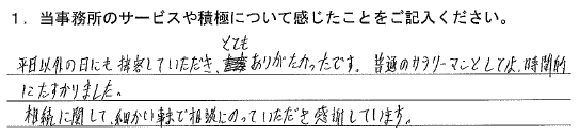 1．当事務所のサービスや積極について感じたことをご記入ください。
平日以外の日にも捜案していただき、とてもありがたかったです。普通のサラリーマンとしては、時間的
にたすかりました。
相続に関して、細かい事まで相談にのっていただき感謝しています。